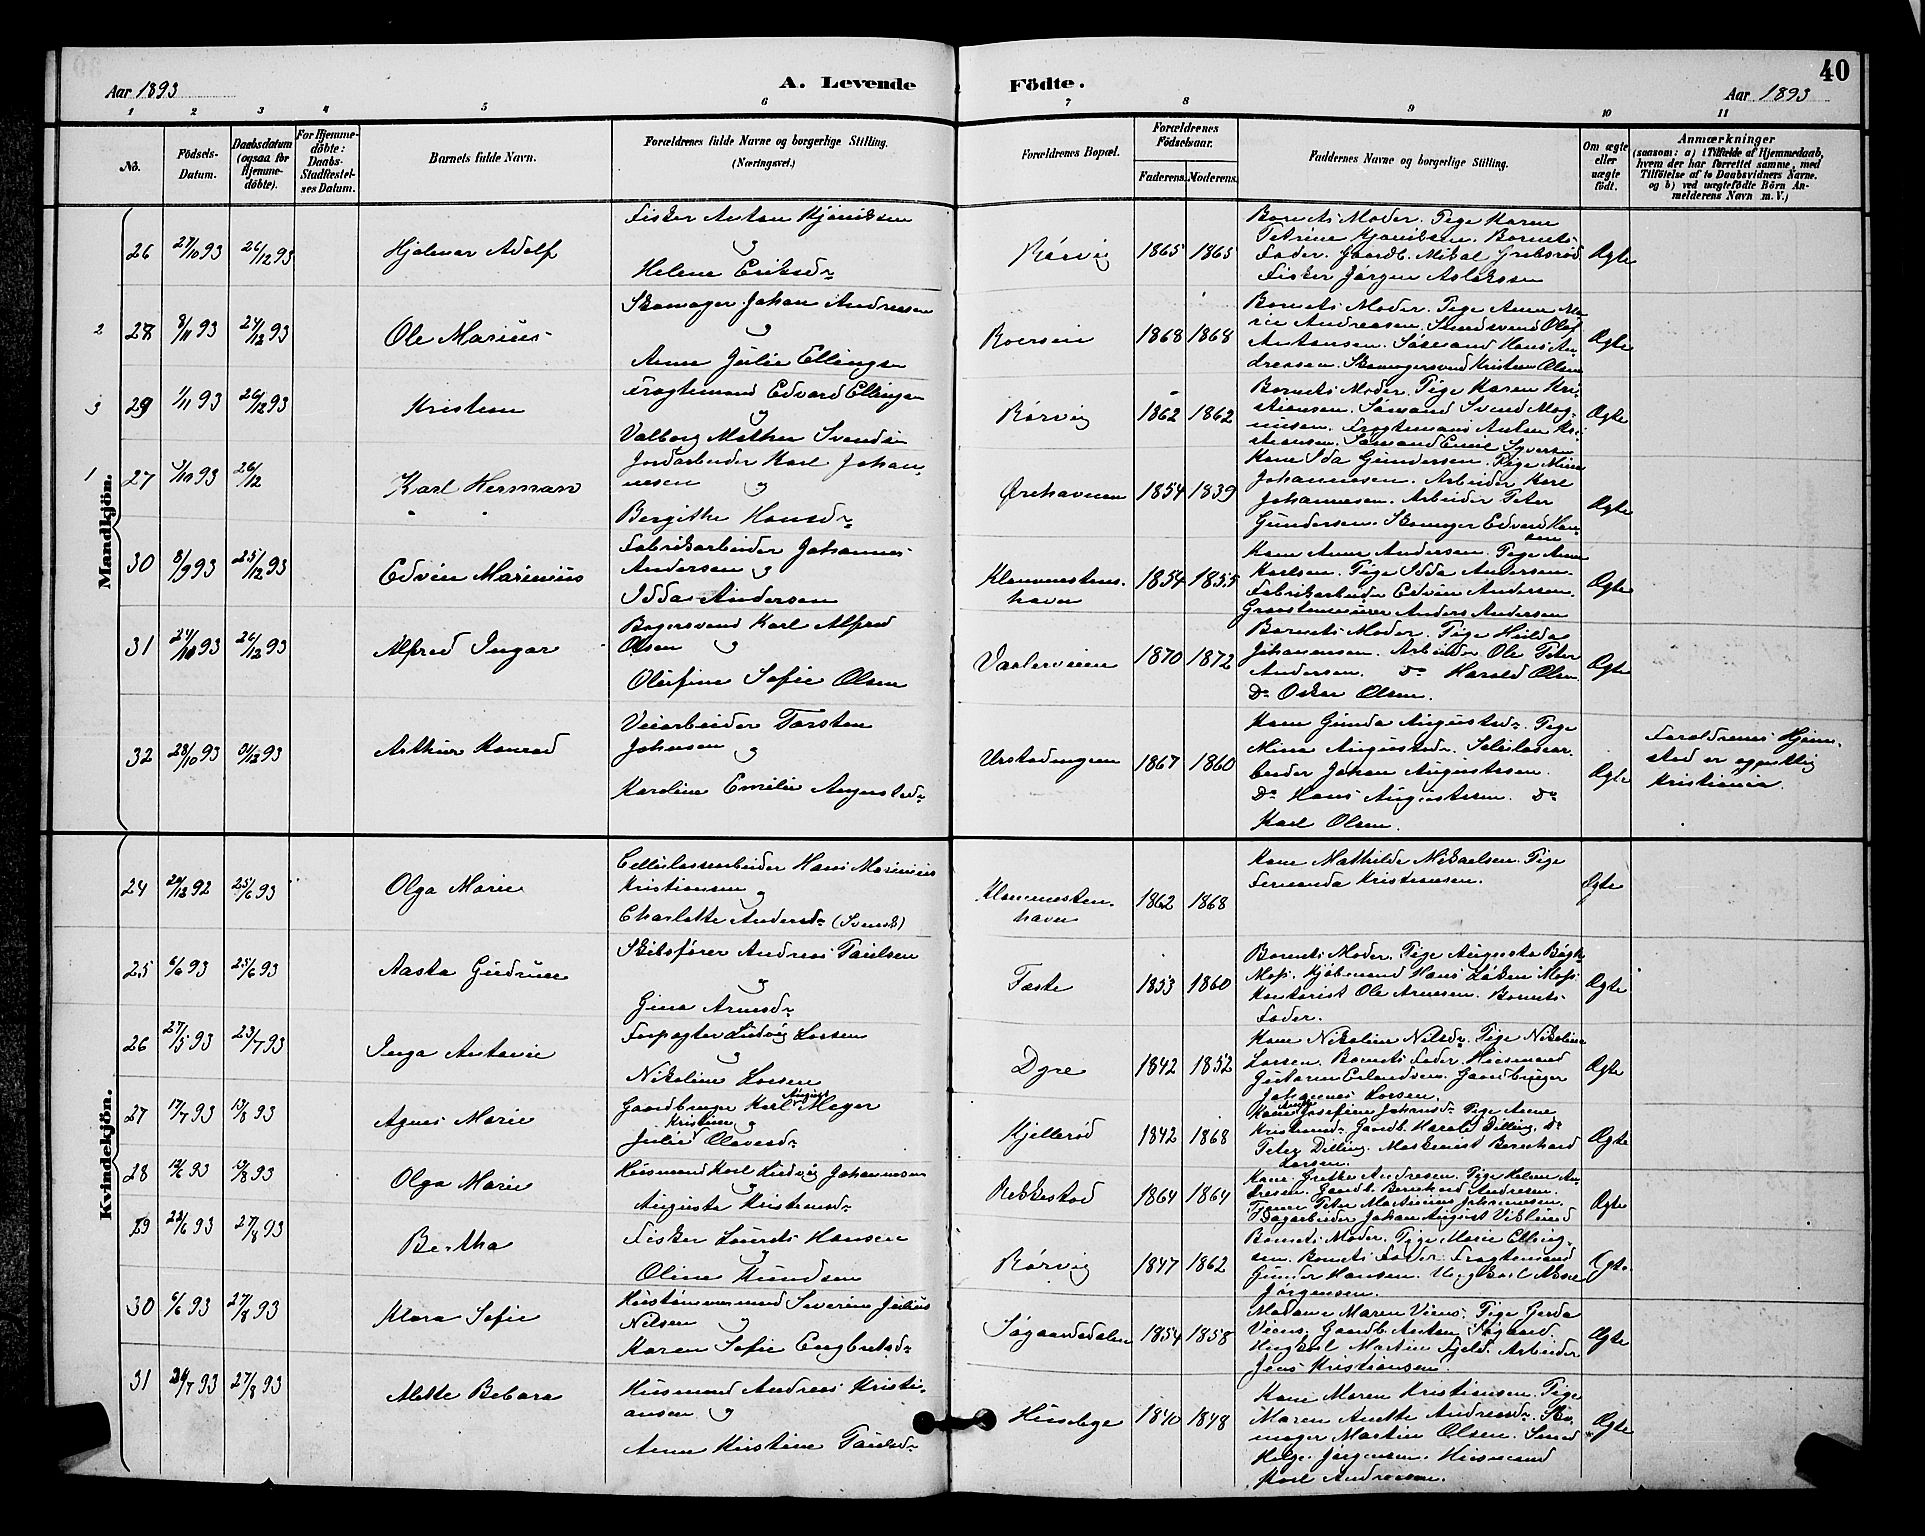 Aar 1893
A. Levende
Födte.
40
Aar 1893
1 2 3 4 5 6 7 8 9 10 11
No.
Födsels-
Datum.
Daabsdatum
(ogsaa for
Hjemme-
döbte).
For Hjemme-
döbte:
Daabs-
Stadfæstel-
ses Datum.
Barnets fulde Navn.
Forældrenes fulde Navne og borgerlige Stilling.
(Næringsvei.)
Forældrenes Bopæl.
Forældrenes
Födselsaar.
Faderens. Moderens.
Faddernes Navne og borgerlige Stilling.
Om ægte
eller
uægte
födt.
Anmærkninger
(saasom: a) i Tilfælde af Hjemmedaab,
hvem der har forrettet samme, med
Tilföielse af to Daabsvidners Navne.
og b) ved uægtefödte Börn An-
melderens Navn m. V.)
Mandkjön.
26 27/10 93 26/12 93 Hjalmar Adolf
Fisker Anton
og
Helene Eriksdr
Rørvig 1865 1865
Barnets Moder. Pige Karen
Petrine Barnets
Fader. Gaardb. Mikal
Fisker Jørgen Aslaksen
Ægte
2 28 8/11 93 24/12 93 Ole Marius
Skomager Johan Andresen
og
Anne Julie Ellings
1868 1868
Barnets Moder. Pige Anne Ma-
rie Andreasen. Olaf
Antonsen. Hans An-
dreasen. Skomagersvend Kristian Olsen
Ægte
3 29 1/11 93 26/12 93 Kristian
Fragtemand Edvard Ellingsen
og
Valborg Mathea
Rørvig 1862 1862
Barnets Moder. Pige Karen Kri-
stiansen. Sømand Svend Mag-
nusen. Fragtemand Anton Kri-
stiansen. Sømand Emil Syversen
Ægte
1 27 26/12 Karl Herman
Jordarbeider Karl Johan-
nesen og
Bergithe Hansdr
Ørehavnen 1854 1839
Kone Ida Gundersen. Pige Mina
Johannesen. Arbeider Karl
Johannesen. Arbeider Peter
Gundersen. Skomager Edvard Han-
sen
Ægte
30 8/9 93 25/12 93 Edvin Marinius
Fabrikarbeider Johannes
Andersen og
Idda Andersen
Klommesten-
havn
1854 1855
Kone Anne Andersen. Pige Anne
Karlsen. Pige Idda Andersen.
Fabrikarbeider Edvin Andersen.
Anders Andersen
Ægte
31 24/10 93 26/12 93 Alfred Ingar
Bagersvend Karl Alfred
Olsen og
Olufine Sofie Olsen
Vaalerveien 1870 1872
Barnets Moder. Pige Hulda
Johannesen. Arbeider Ole Peter
Andersen. Do Harald Olsen
Do Oskar Olsen.
Ægte
32 28/10 93 31/12 93 Arthur Konrad
Veiarbeider Torsten
Johnsen og
Karoline Emilie Augustsdr
1867 1860
Kone Gunda Augustsdr. Pige
Mina Augustsdr.
Johan Augustesen.
Do Hans Augustesen. Do
Karl Olsen.
Ægte
Forældrenes Hjem-
sted er egentlig
Kristiania.
Kvindekjön.
24 92 25/6 93 Olga Marie
Cellulosearbeider Hans Marinius
Kristiansen og
Charlotte Andersdr (Svensk)
Klommesten-
havn
1862 1868
Kone Mathilde Mikaelsen. Pige
Fernanda Kristiansen.
Ægte
25 6/6 93 25/6 93 Aasta Gudrun
Skibsfører Andreas Paulsen
og
Gina Arnesdr
Faste 1853 1860
Barnets Moder. Pige Augusta
Moss. Kjøbmand Hans Løken Moss
Kontorist Ole Arnesen. Barnets
Fader.
Ægte
26 27/5 93 23/7 93 Inga Antonie
Forpagter Ludvig Larsen
og
Nikoline Larsen
Dyre 1842 1852
Kone Nikoline Nilsdr. Pige Nikoline
Larsen. Barnets Fader. Husmand
Gaardbruger
Johannes Larsen.
Ægte
27 17/7 93 13/8 93 Agnes Marie
Gaardbruger Karl August Meyer
og
Julie Kristine Olavesdr
Kjellerød 1842 1868
Kone Josefine Johansdr Pige Anne
Gaardb. Harald Dilling. Do
Peter Dilling. Maskinist Bernhard
Larsen.
Ægte
28 93 93 Olga Marie
Husmand Karl Ludvig Johannesen
og
Augusta Kristiansdr
Rekkestad 1864 1864
Kone Grethe Andresen. Pige Helene An-
dresen. Gaardb. Bernhard Andresen.
Peter Martinius Johannesen.
Dagarbeider Johan August
Ægte
29 23/6 93 27/8 93 Bertha
Fisker Laurits Hansen
og
Oline Knudsen
Rørvig 1847 1862
Barnets Moder. Pige Marie Elling-
sen. Barnets Fader. Fragtemand
Gunder Hansen. Ungkarl
Jørgensen.
Ægte
30 6/6 93 27/8 93 Klara Sofie
Severin Julius
Nilsen og
Karen Sofie Engbretsdr
Søgaardsdalen 1854 1858
Madame Maren Viens. Pige Gerda
Viens. Gaardb. Anton Søgaard.
Ungkarl Martin Fjeld. Arbeider
Jens Kristiansen.
Ægte
31 93 27/8 93 Mette Bebara
Husmand Andreas Kristi-
ansen og
Anne Kirstine Paulsdr
Huseløge 1840 1848
Kone Maren Kristiansen. Pige
Maren Anette Andreasdr. Sko-
mager Martin Olsen. Smed
Helge Jørgensen. Husmand
Karl Andreasen.
Ægte